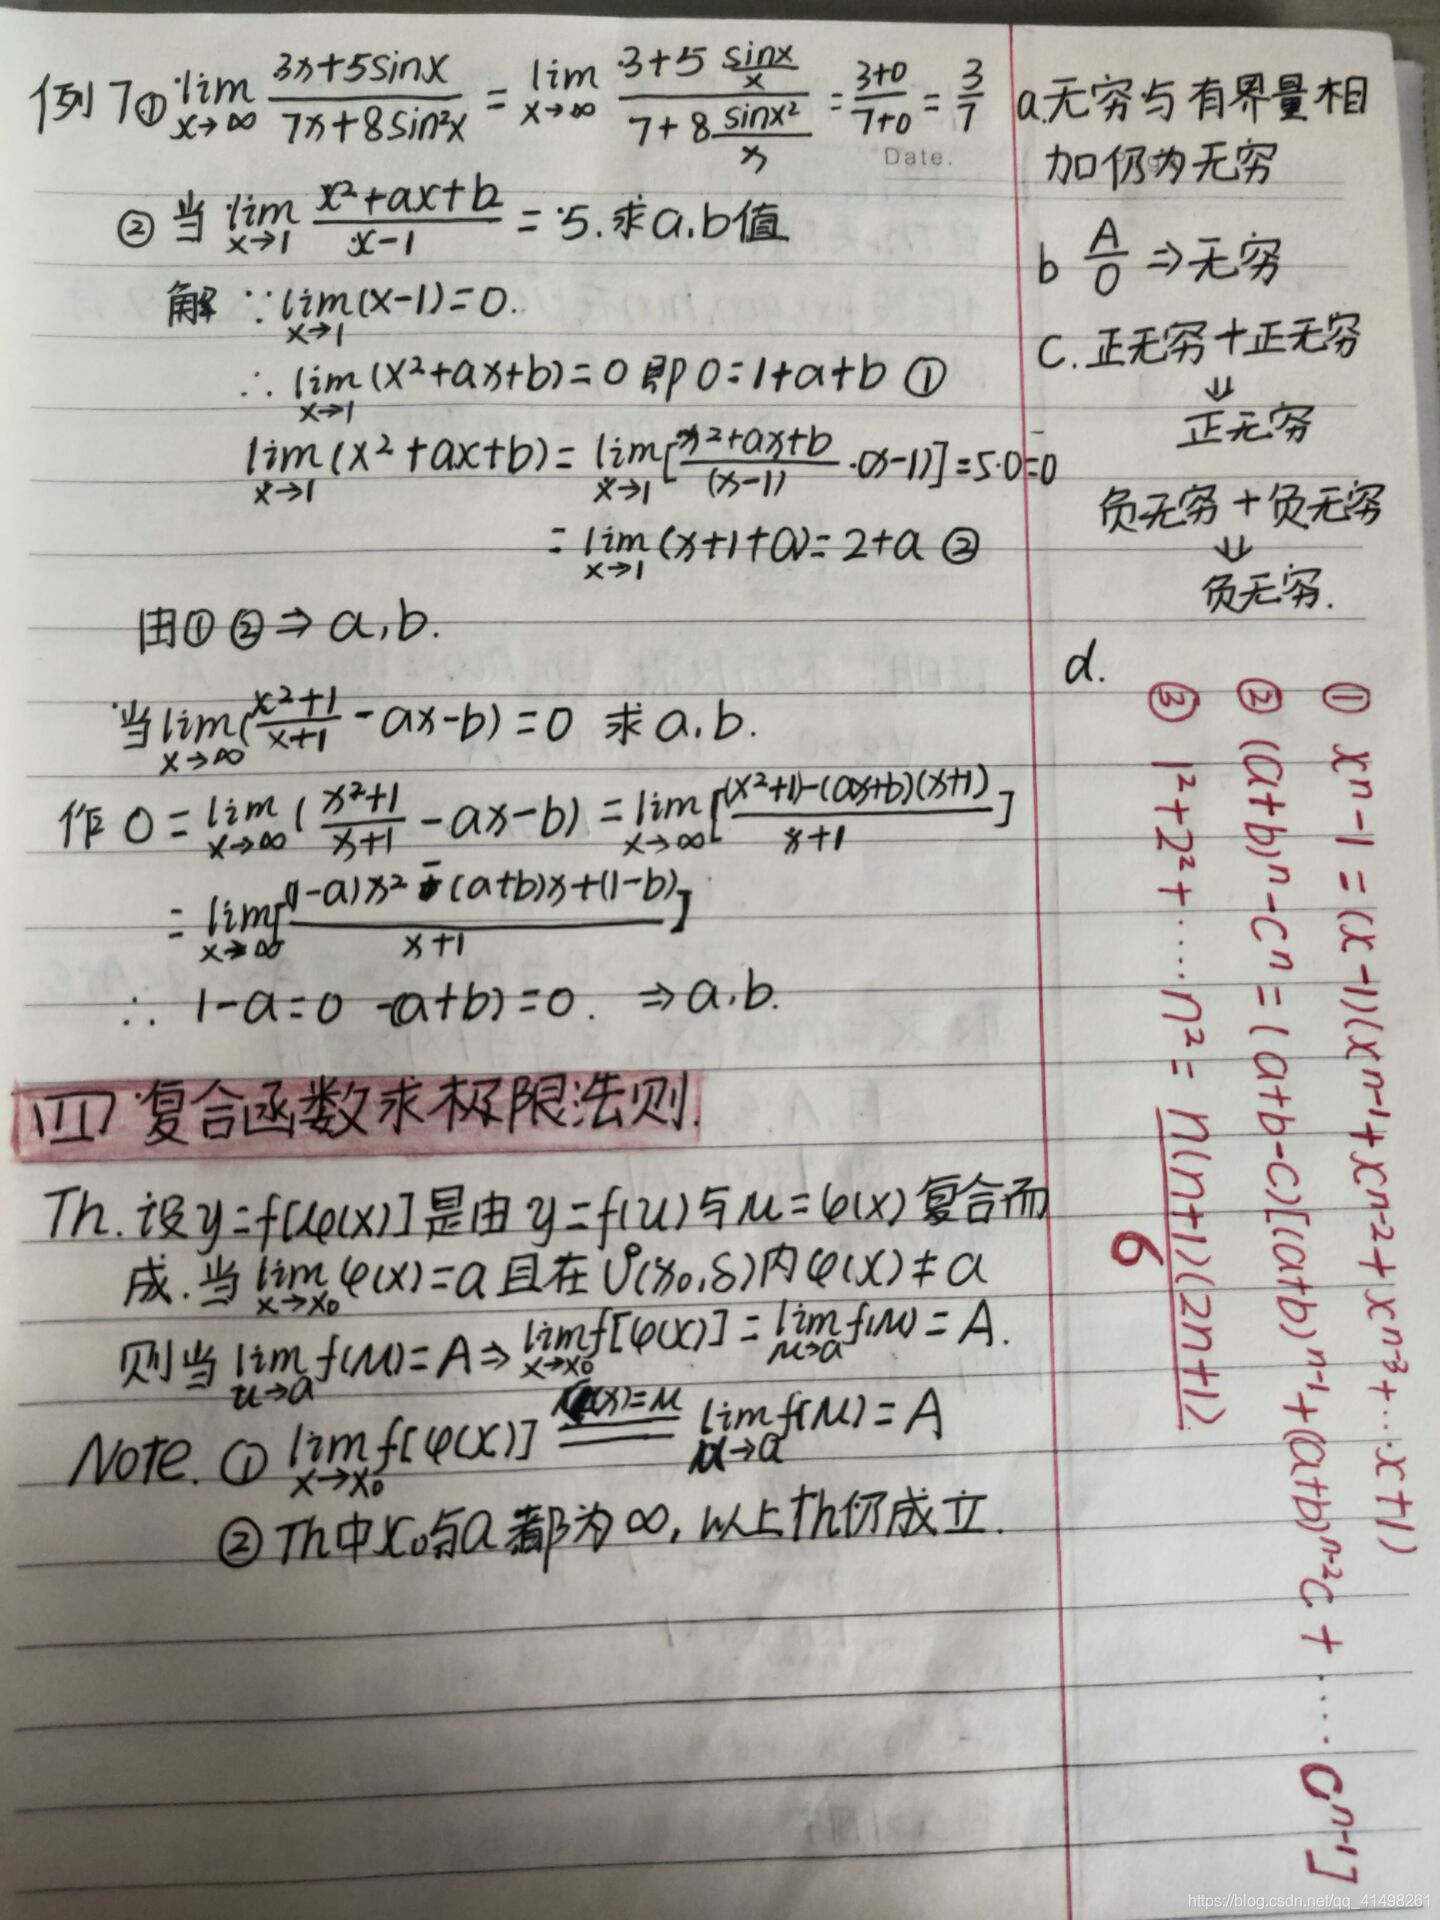 例7① lim x→∞ (3x+5sinx)/(7x+8sin²x) = lim x→∞ (3+5 sinx/x)/(7+8 sinx²/x) = (3+0)/(7+0) = 3/7
Date.
② 当 lim x→1 (x²+ax+b)/(x-1) = 5. 求a,b值
解 ∵ lim x→1 (x-1)=0.
∴ lim x→1 (x²+ax+b)=0 即 0=1+a+b ①
lim x→1 (x²+ax+b)= lim x→1 [(x²+ax+b)/(x-1) ·(x-1)]=5·0=0
= lim x→1 (x+1+a)=2+a ②
由① ② ⇒ a,b.
当 lim x→∞ ((x²+1)/(x+1) -ax-b)=0 求a,b.
作 0= lim x→∞ ((x²+1)/(x+1) -ax-b) = lim x→∞ [((x²+1)-(ax+b)(x+1))/(x+1)]
= lim x→∞ [((1-a)x² -(a+b)x+(1-b))/(x+1)]
∴ 1-a=0 -(a+b)=0. ⇒a,b.
(四) 复合函数求极限法则.
Th. 设y=f[φ(x)]是由y=f(u)与u=φ(x)复合而
成.当 lim x→x₀ φ(x)=a且在Ů(x₀,δ)内φ(x)≠a
则当 lim u→a f(u)=A⇒ lim x→x₀ f[φ(x)]= lim u→a f(u)=A.
Note. ① lim x→x₀ f[φ(x)] φ(x)=u ═══ lim u→a f(u)=A
② Th中x₀与a都为∞,以上th仍成立.
a.无穷与有界量相
加仍为无穷
b A/0 ⇒无穷
C.正无穷+正无穷
⇓
正无穷
负无穷+负无穷
⇓
负无穷.
d.
① xⁿ-1=(x-1)(xⁿ⁻¹+xⁿ⁻²+xⁿ⁻³+…x+1)
② (a+b)ⁿ-cⁿ=(a+b-c)[(a+b)ⁿ⁻¹+(a+b)ⁿ⁻²c+……cⁿ⁻¹]
③ 1²+2²+……n²= n(n+1)(2n+1)/6
https://blog.csdn.net/qq_41498261